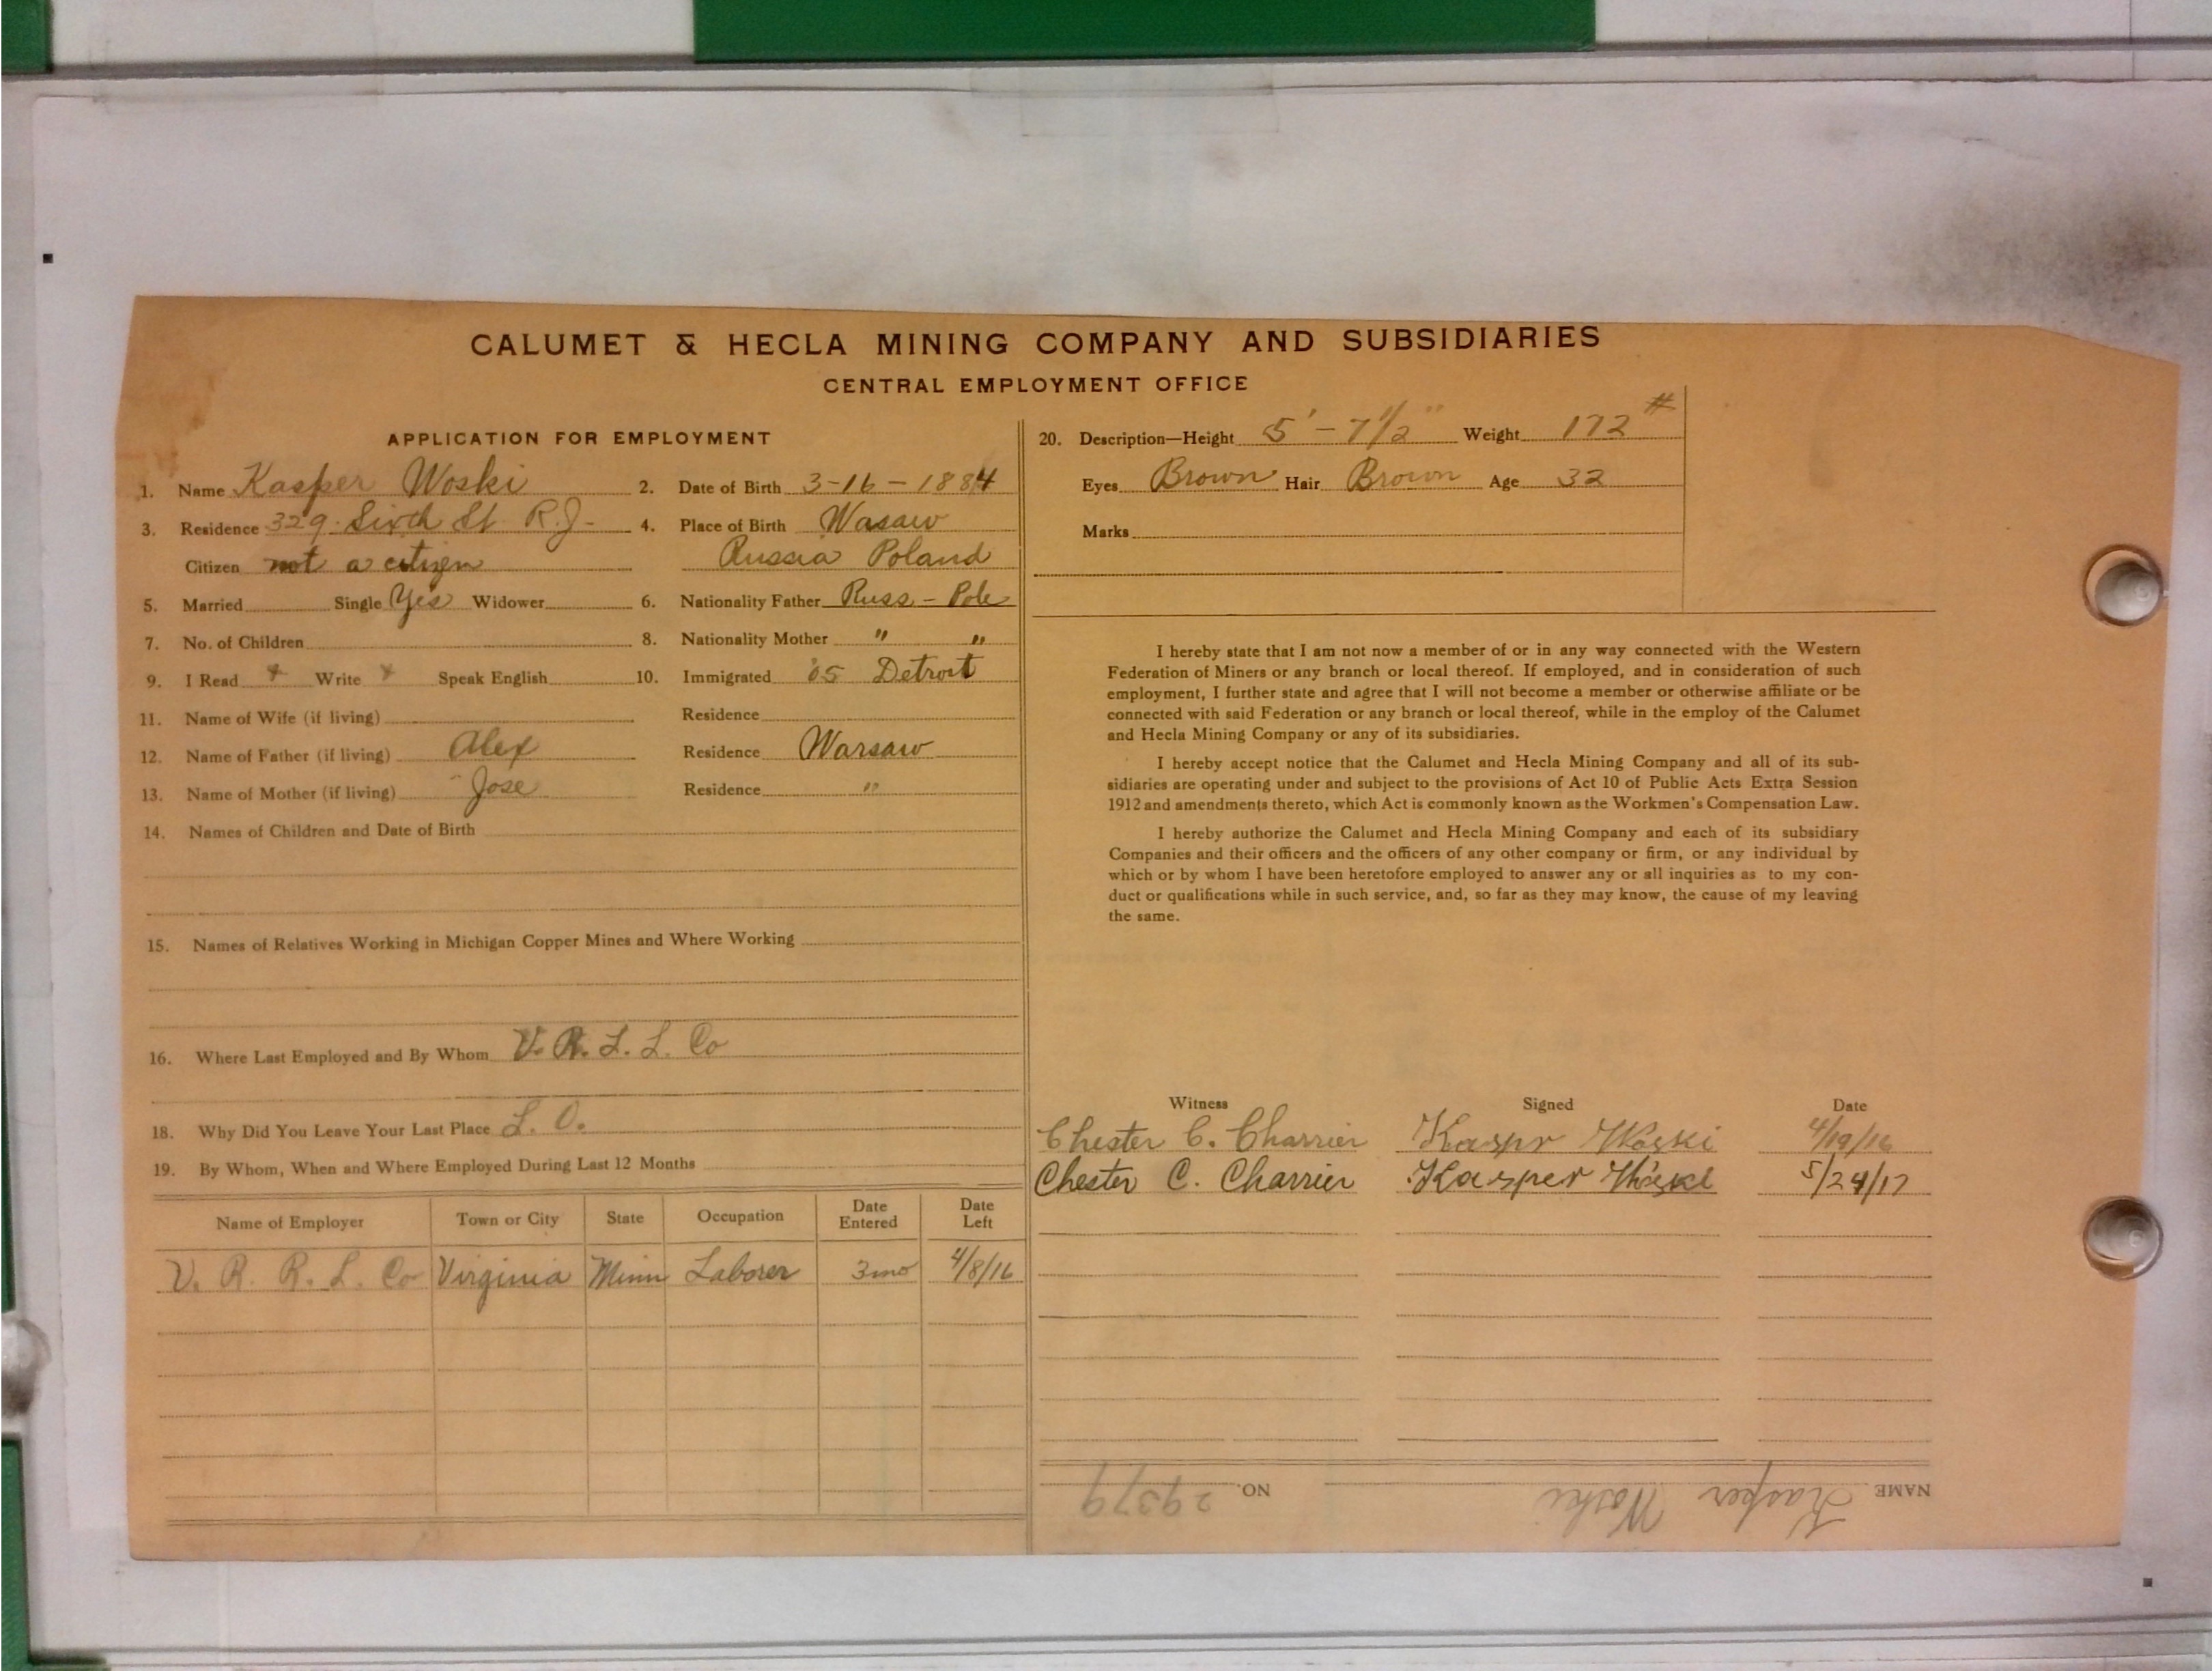 CALUMET & HECLA MINING COMPANY AND SUBSIDIARIES
CENTRAL EMPLOYMENT OFFICE
APPLICATION FOR EMPLOYMENT
1. Name Kasper Woski 2. Date of Birth 3-16-1884
3. Residence 329 Sixth St R.J. 4. Place of Birth Wasaw
Citizen not a citizen Russia Poland
5. Married Single Yes Widower 6. Nationality Father Russ-Pole
7. No. of Children 8. Nationality Mother " "
9. I Read + Write + Speak English 10. Immigrated '05 Detroit
11. Name of Wife (if living) Residence
12. Name of Father (if living) Alex Residence Warsaw
13. Name of Mother (if living) Jose Residence "
14. Names of Children and Date of Birth
15. Names of Relatives Working in Michigan Copper Mines and Where Working
16. Where Last Employed and By Whom V. R. L. L. Co
18. Why Did You Leave Your Last Place L. O.
19. By Whom, When and Where Employed During Last 12 Months
Name of Employer Town or City State Occupation Date Entered Date Left
V. R. R. L. Co Virginia Minn Laborer 3mo 4/8/16
20. Description—Height 5'-7 1/2" Weight 172 #
Eyes Brown Hair Brown Age 32
Marks
I hereby state that I am not now a member of or in any way connected with the Western
Federation of Miners or any branch or local thereof. If employed, and in consideration of such
employment, I further state and agree that I will not become a member or otherwise affiliate or be
connected with said Federation or any branch or local thereof, while in the employ of the Calumet
and Hecla Mining Company or any of its subsidiaries.
I hereby accept notice that the Calumet and Hecla Mining Company and all of its sub-
sidiaries are operating under and subject to the provisions of Act 10 of Public Acts Extra Session
1912 and amendments thereto, which Act is commonly known as the Workmen's Compensation Law.
I hereby authorize the Calumet and Hecla Mining Company and each of its subsidiary
Companies and their officers and the officers of any other company or firm, or any individual by
which or by whom I have been heretofore employed to answer any or all inquiries as to my con-
duct or qualifications while in such service, and, so far as they may know, the cause of my leaving
the same.
Witness Signed Date
Chester C. Charrier Kaspr Woski 4/19/16
Chester C. Charrier Kasper Woski 5/24/17
NAME Kasper Woski NO. 29379